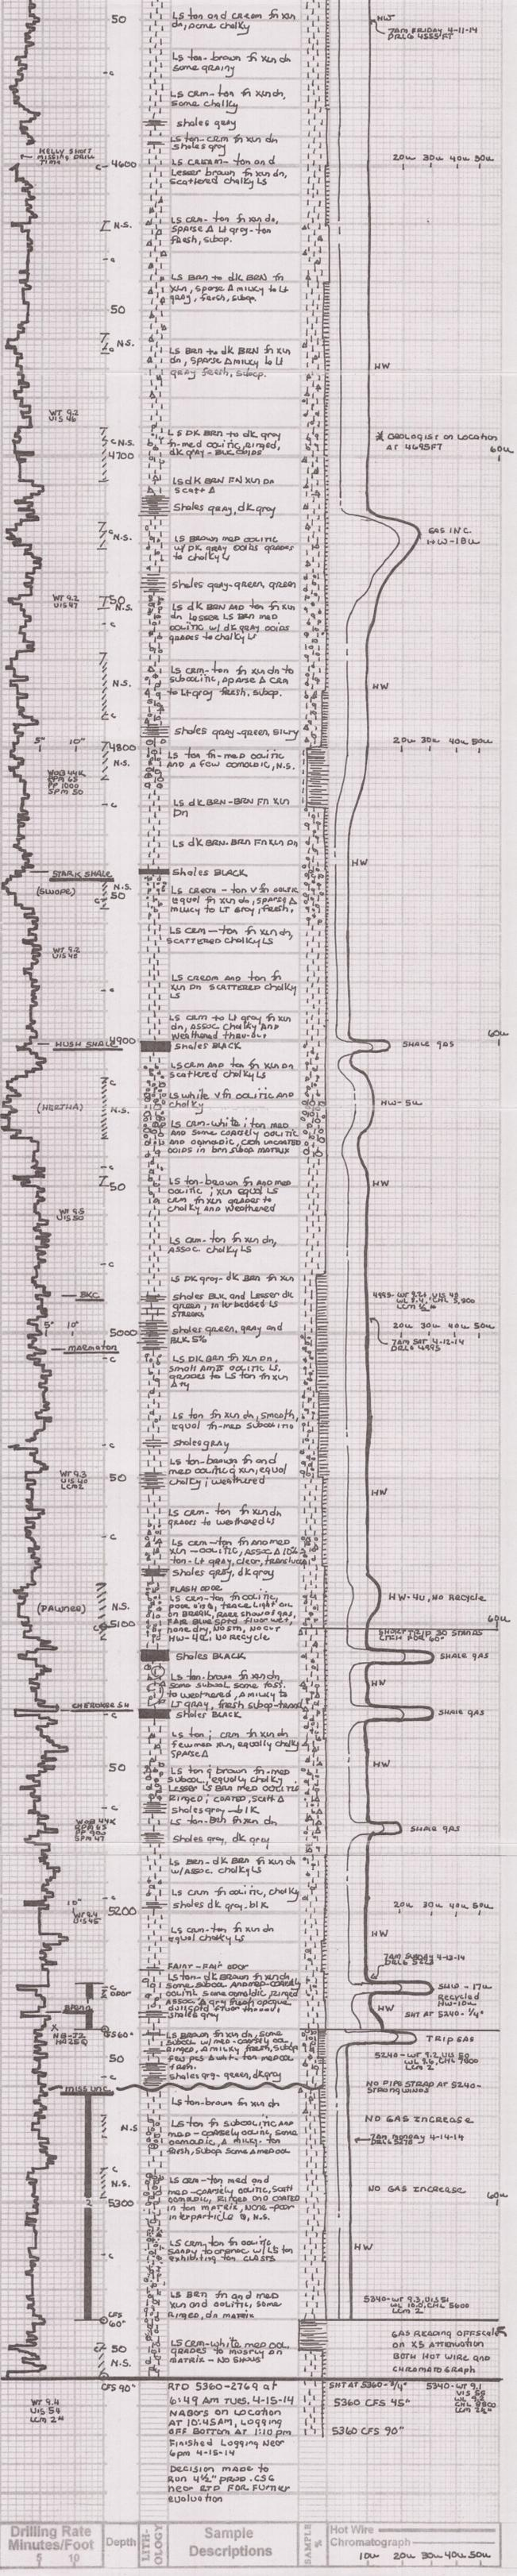 50
LS tan and cream fn xln
dn, some chalky
NW
7AM FRIDAY 4-11-14
DRLG 4555 FT
LS tan-brown fn xln dn
some grainy
LS crm-tan fn xln dn,
some chalky
shales gray
LS tan-crm fn xln dn
shales gray
KELLY SHORT
MISSING DRILL
TIME
C 4600
LS cream-tan and
Lesser brown fn xln dn,
scattered chalky LS
20u 30u 40u 50u
N.S.
LS crm-tan fn xln dn,
sparse Δ Lt gray-tan
fresh, subop.
LS BRN to dk BRN fn
xln, sparse Δ milky to Lt
gray, fresh, subop.
50
N.S.
LS BRN to dk BRN fn xln
dn, sparse Δ milky to Lt
gray fresh, subop.
HW
WT 9.2
VIS 46
C N.S.
4700
LS DK BRN to dk gray
fn-med oolitic, ringed,
dk gray-BLK ooids
* GEOLOGIST ON LOCATION
AT 4695FT
60u
LS dk BRN FN XLN DN
scatt Δ
Shales gray, dk gray
N.S.
LS BROWN med oolitic
w/ DK gray ooids grades
to chalky LS
GAS INC.
HW-18u
shales gray-green, green
WT 9.2
VIS 47
50
N.S.
LS dk BRN AND tan fn xln
dn Lesser LS BRN med
oolitic w/ dk gray ooids
grades to chalky LS
N.S.
LS crm-tan fn xln dn to
suboolitic, sparse Δ crm
to Lt gray fresh, subop.
HW
shales gray-green, silty
5" 10"
4800
20u 30u 40u 50u
N.S.
LS tan fn-med oolitic
and a few oomoldic, N.S.
WOB 44K
RPM 65
PP 1000
SPM 50
LS dk BRN-BRN FN XLN
Dn
LS dk BRN-BRN FN XLN DN
HW
STARK SHALE
Shales BLACK
(SWOPE)
N.S.
50
LS cream-tan v fn oolitic
equal fn xln dn, sparse Δ
milky to LT gray, fresh.
LS crm-tan fn xln dn,
SCATTERED CHALKY LS
WT 9.2
VIS 45
LS cream and tan fn
xln dn scattered chalky
LS
LS crm to Lt gray fn xln
dn, assoc chalky and
weathered thru-out
60u
HUSH SHALE
4900
shales BLACK
SHALE GAS
LS crm and tan fn xln dn
scattered chalky LS
(HERTHA)
N.S.
LS white v fn oolitic and
chalky
HW-5u
LS crm-white; tan med
and some coarsely oolitic
and oomoldic, crm uncoated
ooids in brn subop matrix
50
LS tan-brown fn and med
oolitic; xln equal LS
crm fn xln grades to
chalky and weathered
HW
WT 9.5
VIS 50
LS crm-tan fn xln dn,
assoc. chalky LS
LS DK gray-dk BRN fn xln
BKC
shales BLK and Lesser dk
green, interbedded LS
streaks
4995-WT 9.2+, VIS 40
WL 9.4, CHL 5,900
LCM ½#
5" 10"
5000
shales green, gray and
BLK 5%
20u 30u 40u 50u
MARMATON
7AM SAT 4-12-14
DRLG 4995
LS DK BRN fn xln DN,
small amt oolitic LS,
grades to LS tan fn xln
LS tan fn xln dn, smooth,
equal fn-med suboolitic
shales gray
WT 9.3
VIS 40
LCM 2
50
LS tan-brown fn and
med oolitic; xln, equal
chalky; weathered
HW
LS crm-tan fn xln dn
grades to weathered LS
LS crm-tan fn and med
xln-oolitic, assoc Δ 10%
tan-Lt gray, clear, translucent
shales gray, dk gray
(PAWNEE)
N.S.
5100
FLASH ODOR
LS crm-tan fn oolitic,
poor vis ø, trace light oil
on BREAK, RARE show of gas,
FAIR BLUE SPTD fluor wet,
none dry, no stn, no cut
HW-4u, No Recycle
HW-4u, NO RECYCLE
60u
SHORT TRIP 30 STANDS
CTCH FOR 60"
Shales BLACK
SHALE GAS
LS tan-brown fn xln dn,
some subool some foss.
to weathered, Δ milky to
LT gray, fresh subop-transl
HW
CHEROKEE SH
shales BLACK
SHALE GAS
LS tan; crm fn xln dn
few med xln, equally chalky
sparse Δ
50
HW
LS tan & brown fn-med
subool; equally chalky
Lesser LS BRN med oolitic
Ringed; coated, scatt Δ
shales gray-blk
WOB 44K
RPM 65
PP 900
SPM 47
LS tan-Brn fn xln dn
SHALE GAS
Shales gray, dk gray
LS BRN-dk BRN fn xln dn
w/ assoc. chalky LS
LS crm fn oolitic, chalky
shales dk gray-blk
10"
5200
20u 30u 40u 50u
WT 9.4
VIS 45
LS crm-tan fn xln dn
equal chalky LS
HW
7AM SUNDAY 4-13-14
DRLG 5223
ODOR
FAINT-FAIR ODOR
LS tan-dk BROWN fn xln dn,
some subool and med-coarsely
oolitic some oomoldic ringed
assoc Δ gray fresh opaque
shales gray
SHO-17u
Recycled
HW-10u
HW
SHT AT 5240-¼°
CFS 60"
NB-#2
LS BROWN fn xln dn, some
subool, med-coarsely ool
ringed, Δ milky fresh, subop
few pcs
fresh.
TRIP GAS
50
shales gry-green, dk gray
5240-WT 9.2, VIS 50
WL 9.6, CHL 7400
LCM 2
MISS UNC.
NO PIPE STRAP AT 5240-
STRONG WINDS
LS tan-brown fn xln dn
N.S
LS tan fn suboolitic and
med-coarsely oolitic, some
oomoldic, Δ milky-tan
fresh, subop some amedool
NO GAS INCREASE
7AM MONDAY 4-14-14
DRLG 5278
N.S.
5300
2
LS crm-tan med and
med-coarsely oolitic, scatt
oomoldic, Ringed and coated
in tan matrix, none-poor
interparticle ø, N.S.
NO GAS INCREASE
60u
LS crm, tan fn oolitic
sandy to arenac w/ LS tan
exhibiting tan clasts
HW
LS BRN fn and med
xln and oolitic, some
Ringed, dn matrix
5340-WT 9.3, VIS 51
WL 10.0, CHL 5600
LCM 2
CFS
60"
50
N.S.
LS crm-white med ool,
grades to mostly an
matrix-NO SHOWS
GAS READING OFFSCALE
on X5 ATTENUATION
BOTH HOT WIRE and
CHROMATOGRAPH
CFS 90"
WT 9.4
VIS 54
LCM 2#
RTD 5360-2769 at
6:49 AM TUES. 4-15-14
NABORS on Location
AT 10:45AM, Logging
OFF BOTTOM AT 1:10 pm
Finished Logging Near
6pm 4-15-14
DECISION MADE to
RUN 4½" PROD. CSG
near RTD FOR FURTHER
evaluation
SHT AT 5360-¾°
5360 CFS 45"
5360 CFS 90"
5340-WT 9.1
VIS 56
Drilling Rate
Minutes/Foot
5 10
Depth
LITH-
OLOGY
Sample
Descriptions
SAMPLE
%
Hot Wire
Chromatograph
10u 20u 30u 40u 50u